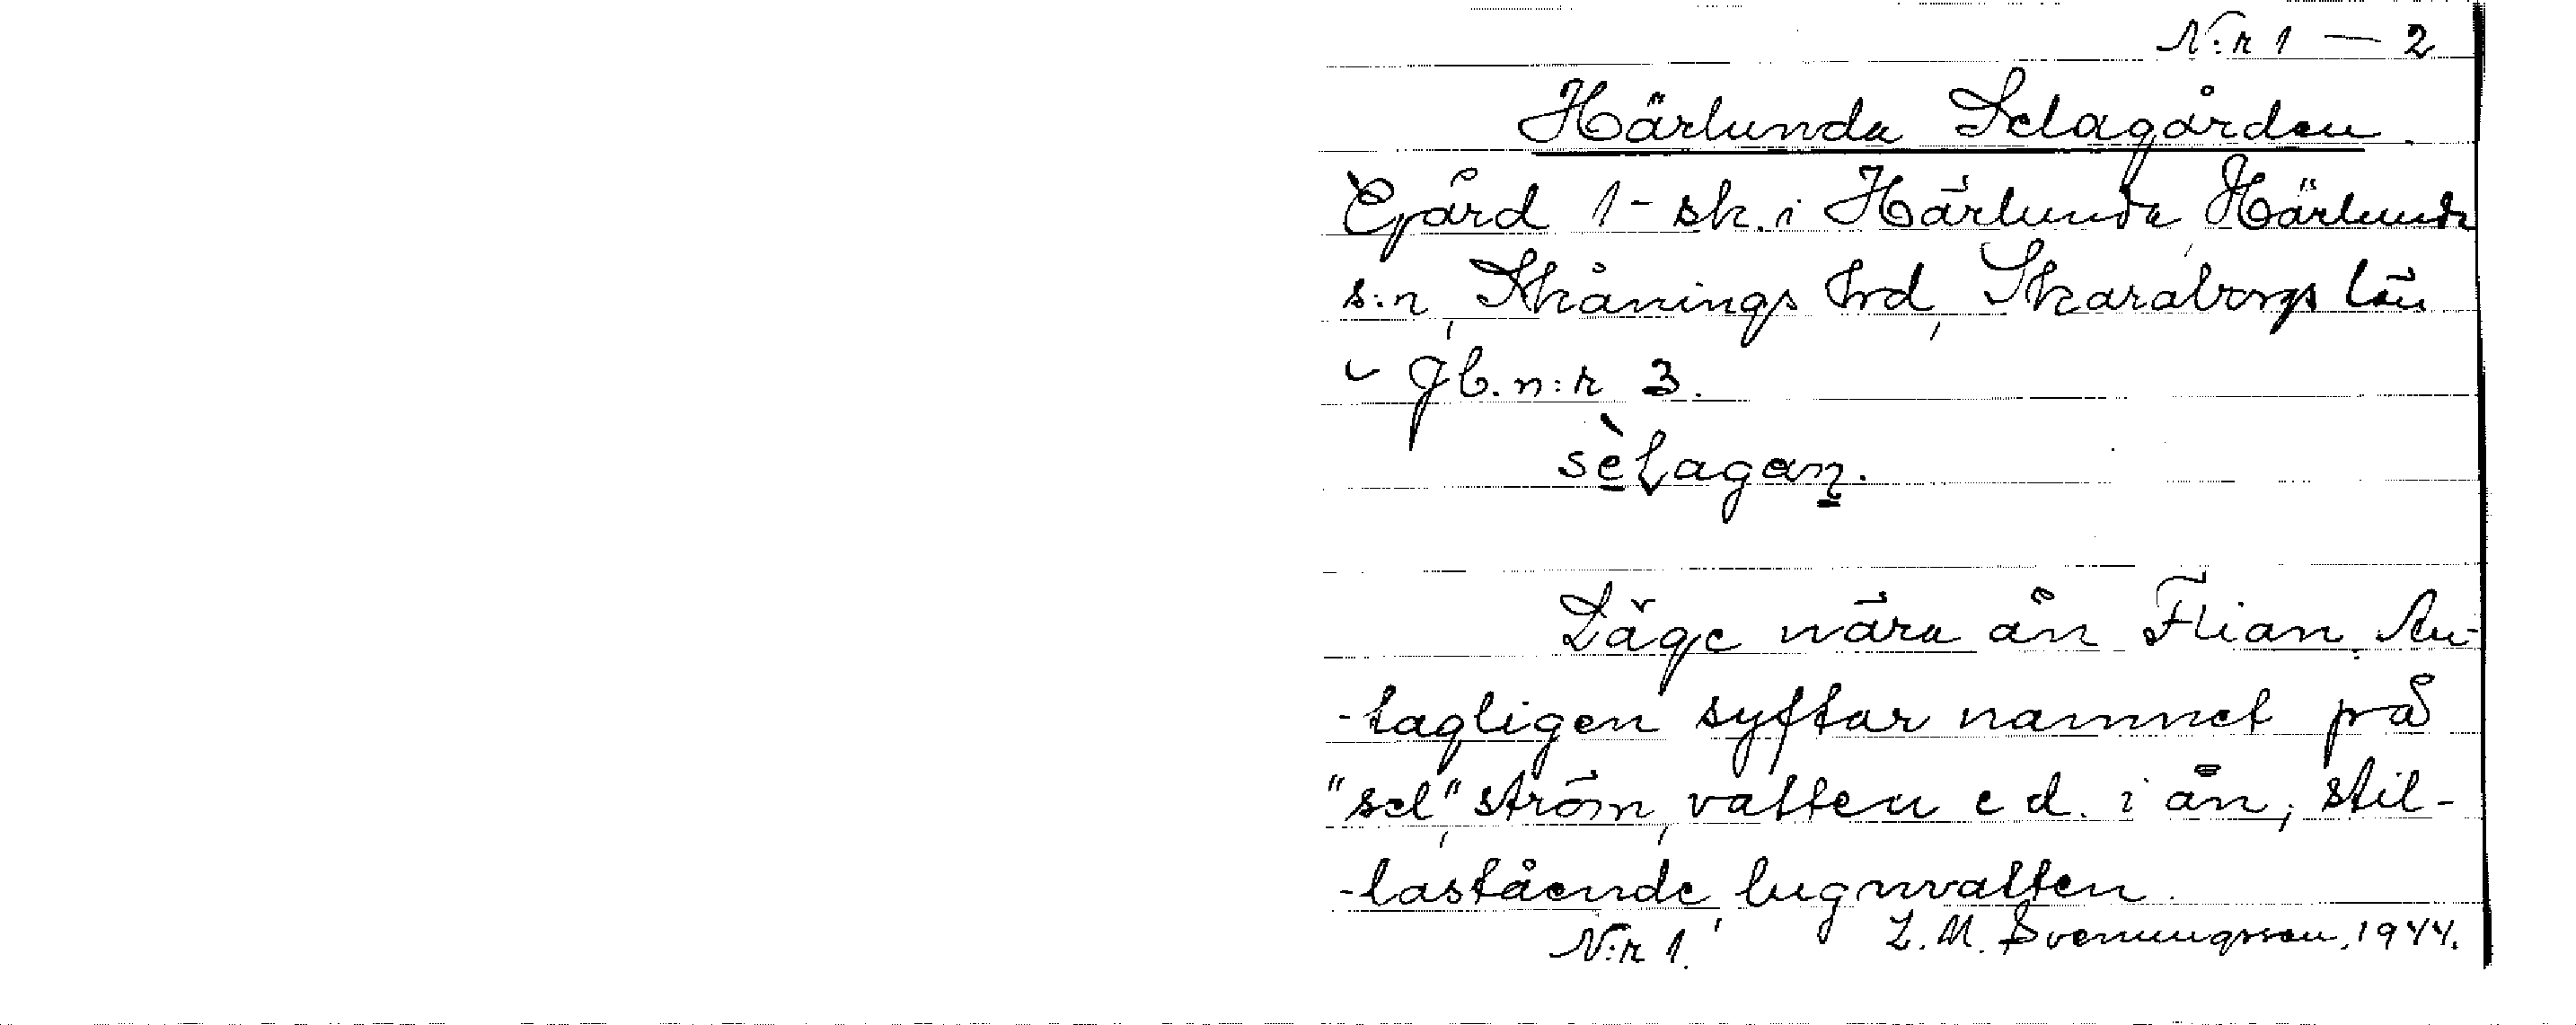 N:r 1 — 2
Härlunda Selagården.
Gård 1-sk. i Härlunda, Härlunda
s:n, Skånings hrd, Skaraborgs län
Jb. n:r 3.
sèlagan.
Läge nära ån Flian. An-
-tagligen syftar namnet på
"sel", ström, vatten e d. i ån; stil-
-lastående, lugnvatten.
N:r 1. L. M. Svenungsson, 1944.